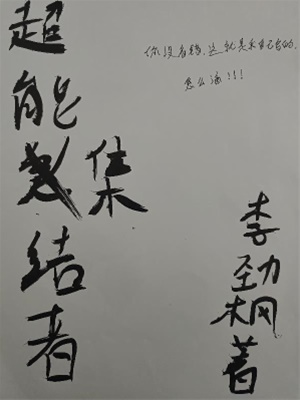 超能结者
集
你没看错,这就是我自己写的,
怎么滴!!!
李劲枫著